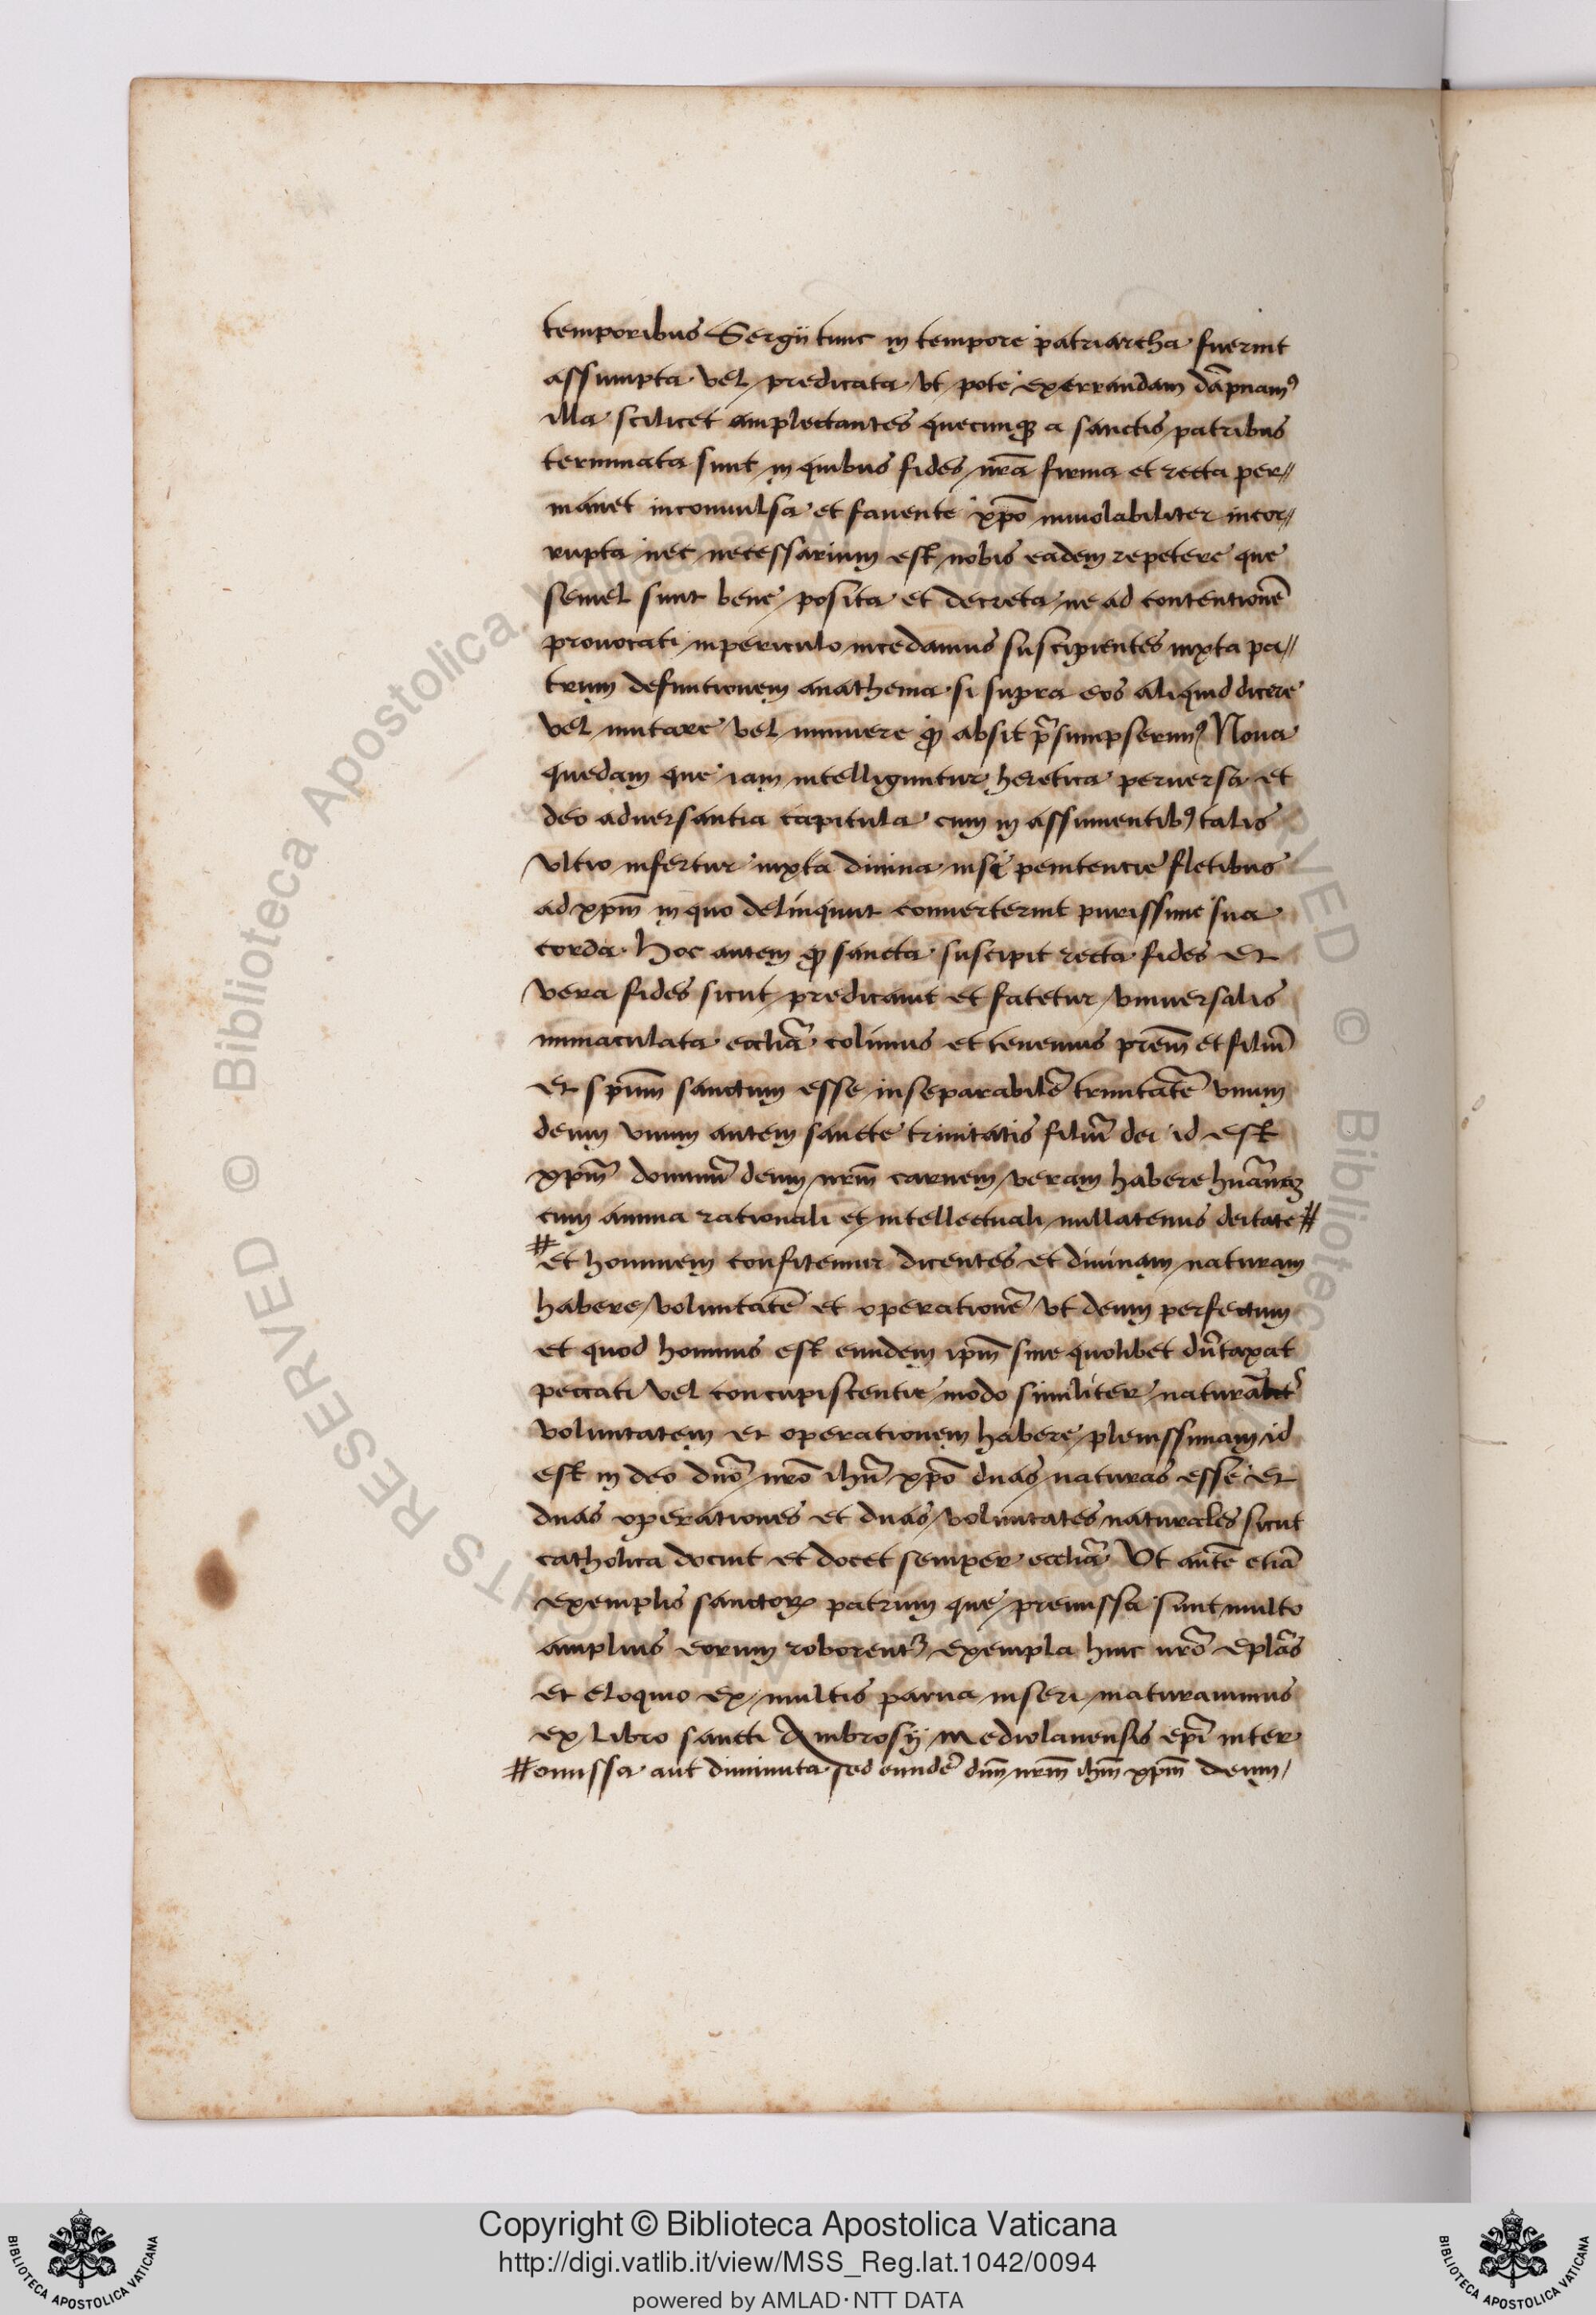 temporibus Sergii tunc in tempore patriarcha fuerint
assumpta vel predicata ut pote exerrandam dāpnamꝰ
illa scilicet amplectantes quecunqꝫ a sanctis patribus
terminata sunt in quibus fides nr̄a firma et recta per//
manet inconuulsa et fauente xp̄o inuiolabiliter incor//
rupta nec necessarium est nobis eadem repetere que
semel sunt bene posita et decreta ne ad contentionē
prouocati in periculo incedamus suscipientes iuxta pa//
trum definitionem anathema si supra eos aliquid dicere
vel mutare vel minuere qꝫ absit p̄sumpserimꝰ Noua
quedam que iam intelliguntur heretica peruersa et
deo aduersantia capitula cum in assumentibꝰ talis
vltio infertur iuxta diuina nisi penitencie fletibus
ad xp̄m in quo delinqunt conuerterint purissime sua
corda. Hoc autem qꝫ sancta suscipit recta fides et
vera fides sicut predicauit et fatetur vniuersalis
immaculata eccliā colimus et tenemus pr̄em et filiū
et sp̄um sanctum esse inseparabilē trinitatē vnum
deum vnum autem sancte trinitatis filiū dei id est
xp̄m dominū deum nr̄m carnem veram habere huānaꝫ
cum anima rationali et intellectuali nullatenus deitate #
# et hominem confitemur dicentes et diuinam naturam
habere voluntatē et operationē vt deum perfectum
et quod hominis est eundem ip̄m sine quolibet dūtaxat
peccati vel concupiscentie modo similiter
voluntatem et operationem habere plenissimam id
est in deo dn̄o nr̄o ihū xp̄o duas naturas esse et
duas operationes et duas voluntates naturales sicut
catholica docuit et docet semper eccliā Vt autē etiā
exemplis sanctoꝝ patrum que premissa sunt multo
amplius eorum roborentꝛ exempla hinc nr̄o eplās
et eloquio ex multis parua inseri maturauimus
ex Libro sancti Ambrosij Mediolanensis ep̄i inter
# omissa aut diminuta sed eundē dn̄m nr̄m ihm̄ xp̄m deum
Copyright © Biblioteca Apostolica Vaticana
http://digi.vatlib.it/view/MSS_Reg.lat.1042/0094
powered by AMLAD·NTT DATA